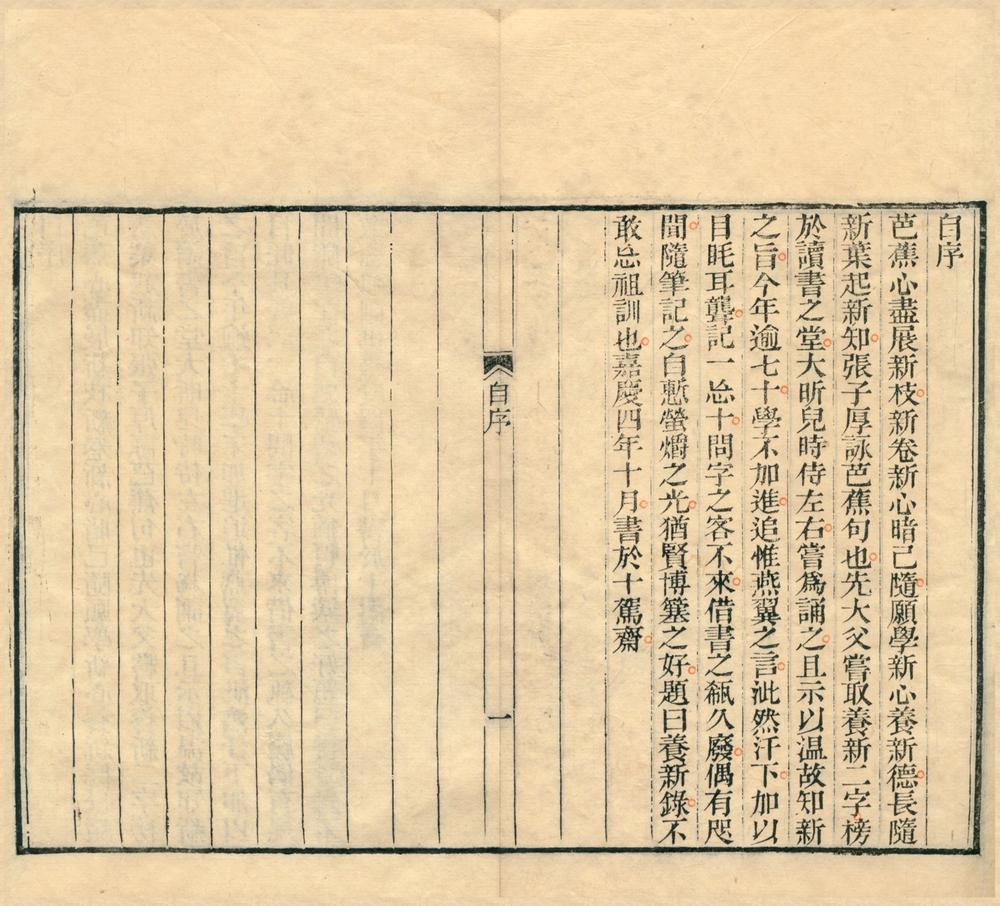 自序
芭蕉心盡展新枝新卷新心暗已隨願學新心養新德長隨
新葉起新知張子厚詠芭蕉句也先大父嘗取養新二字榜
於讀書之堂大昕兒時侍左右嘗爲誦之且示以温故知新
之旨今年逾七十學不加進追惟燕翼之言泚然汗下加以
目眊耳聾記一忘十問字之客不來借書之瓻久廢偶有咫
聞隨筆記之自慙螢爝之光猶賢博簺之好題曰養新錄不
敢忘祖訓也嘉慶四年十月書於十駕齋
自序
一